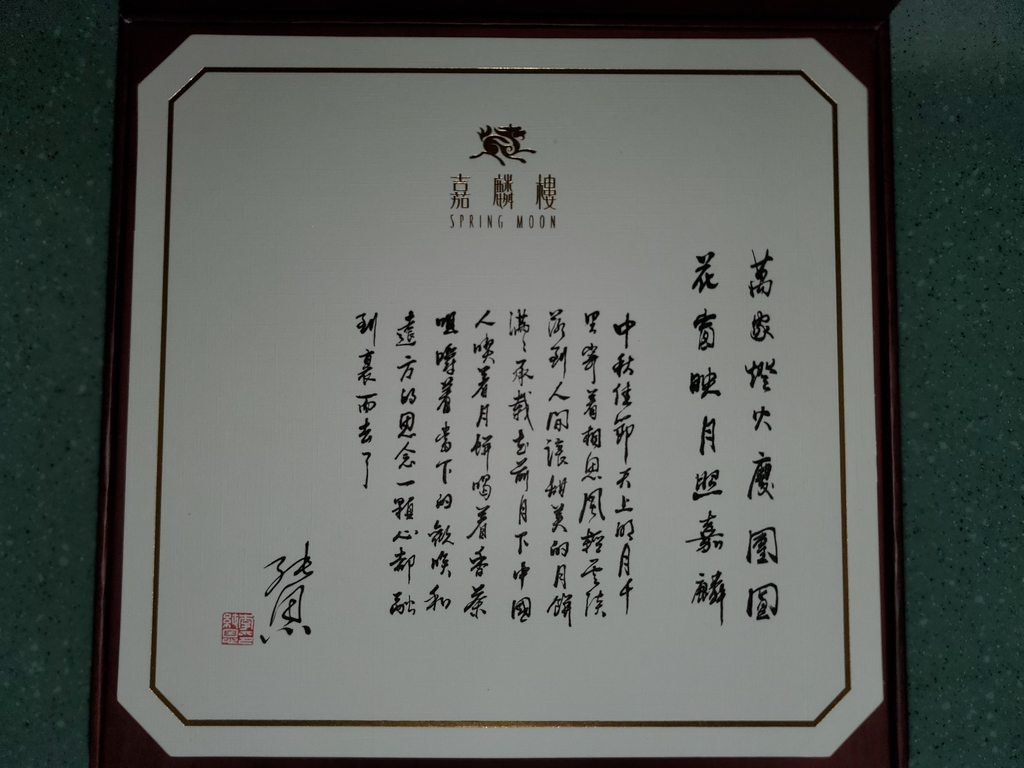 嘉麟樓
SPRING MOON
萬家燈火慶團圓
花窗映月照嘉麟
中秋佳節天上的月千
里寄着相思風輕雲淡
落到人間讓甜美的月餅
滿々承載花前月下中國
人喫着月餅喝着香茶
咀嚼着當下的歡和
遠方的思念一顆心都融
到裏面去了
純恩